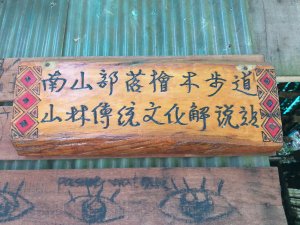 南山部落檜木步道
山林傳统文化解說站